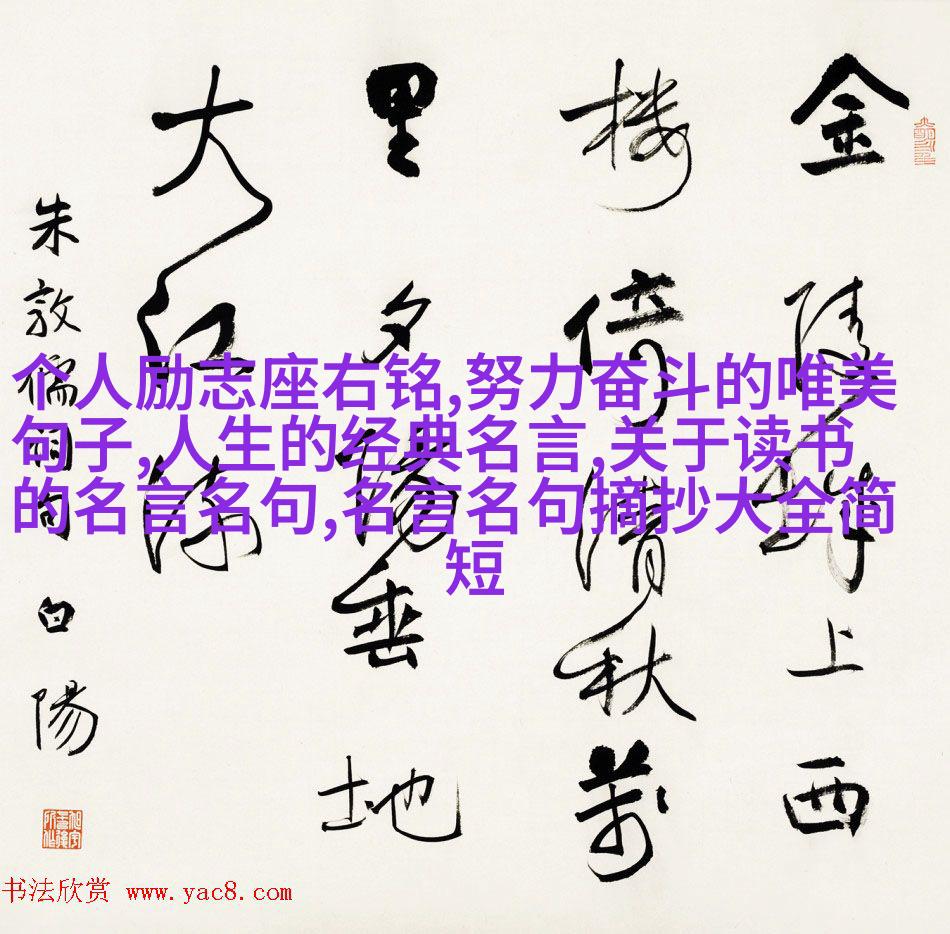 金陵城上西
樓倚清秋萬
里夕陽垂地
大江流
朱敦儒詞句 白陽
个人励志座右铭,努力奋斗的唯美
句子,人生的经典名言,关于读书
的名言名句,名言名句摘抄大全简
短
书法欣赏 www.yac8.com